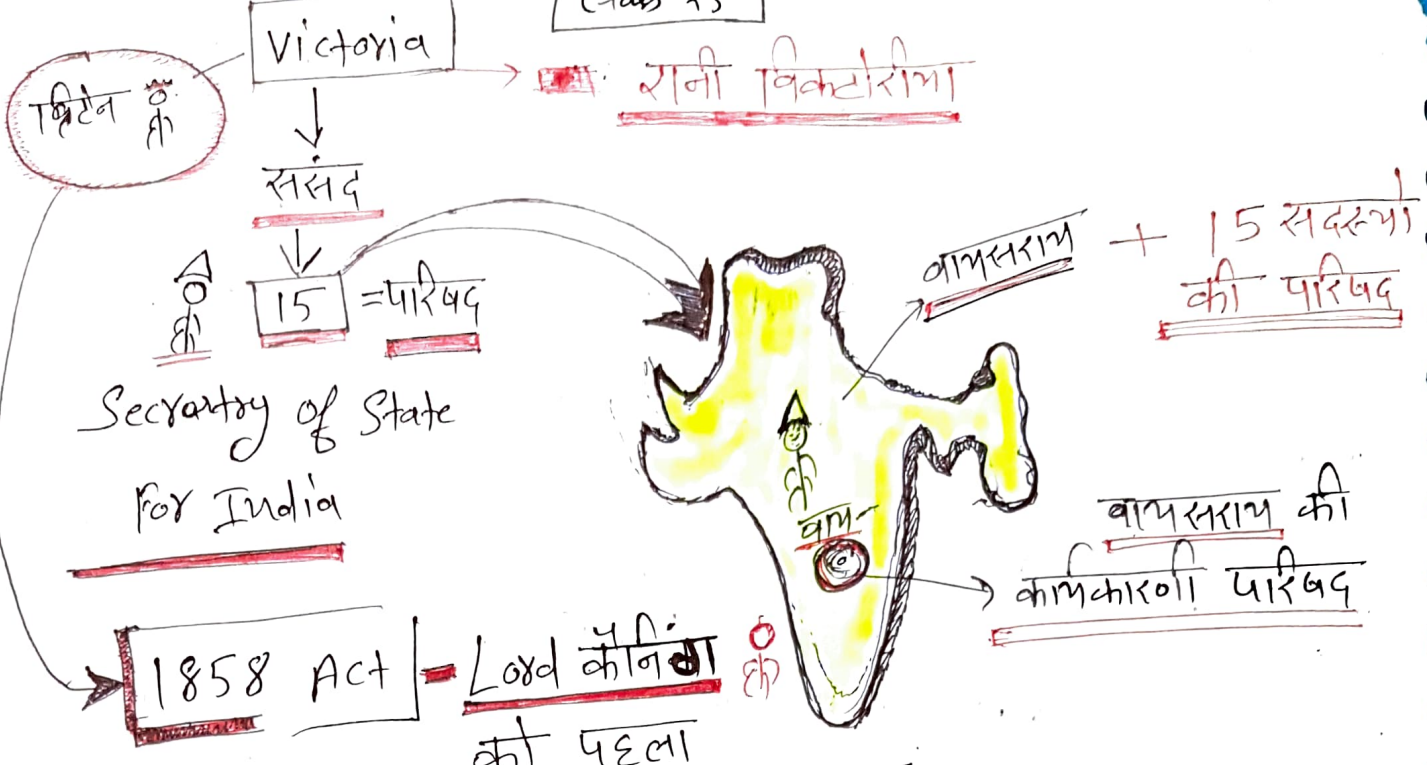 Victoria
ब्रिटेन
रानी विक्टोरीया
ससंद
15 = परिषद
Secrartry of State
For India
वायसराय + 15 सदस्यो
की परिषद
वाय-
वायसराय की
कार्यकारणी परिषद
1858 Act - Lord कैनिंग
को पहला